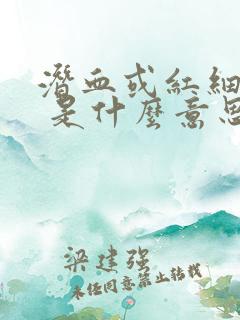 潛血或紅細
是什麼意思
梁建強
未经同意禁止转载